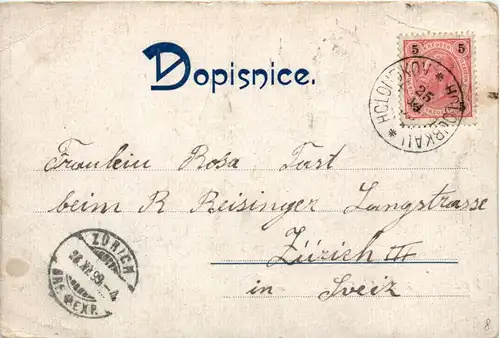 Dopisnice.
5 5
HOLOUBKOV * HOLOUBKAU *
25
Fräulein Rosa Fast
beim R Reisinger Langstrasse
Zürich III
in Sveiz
ZÜRICH
26.XII.99.-4
BRF. EXP.
8